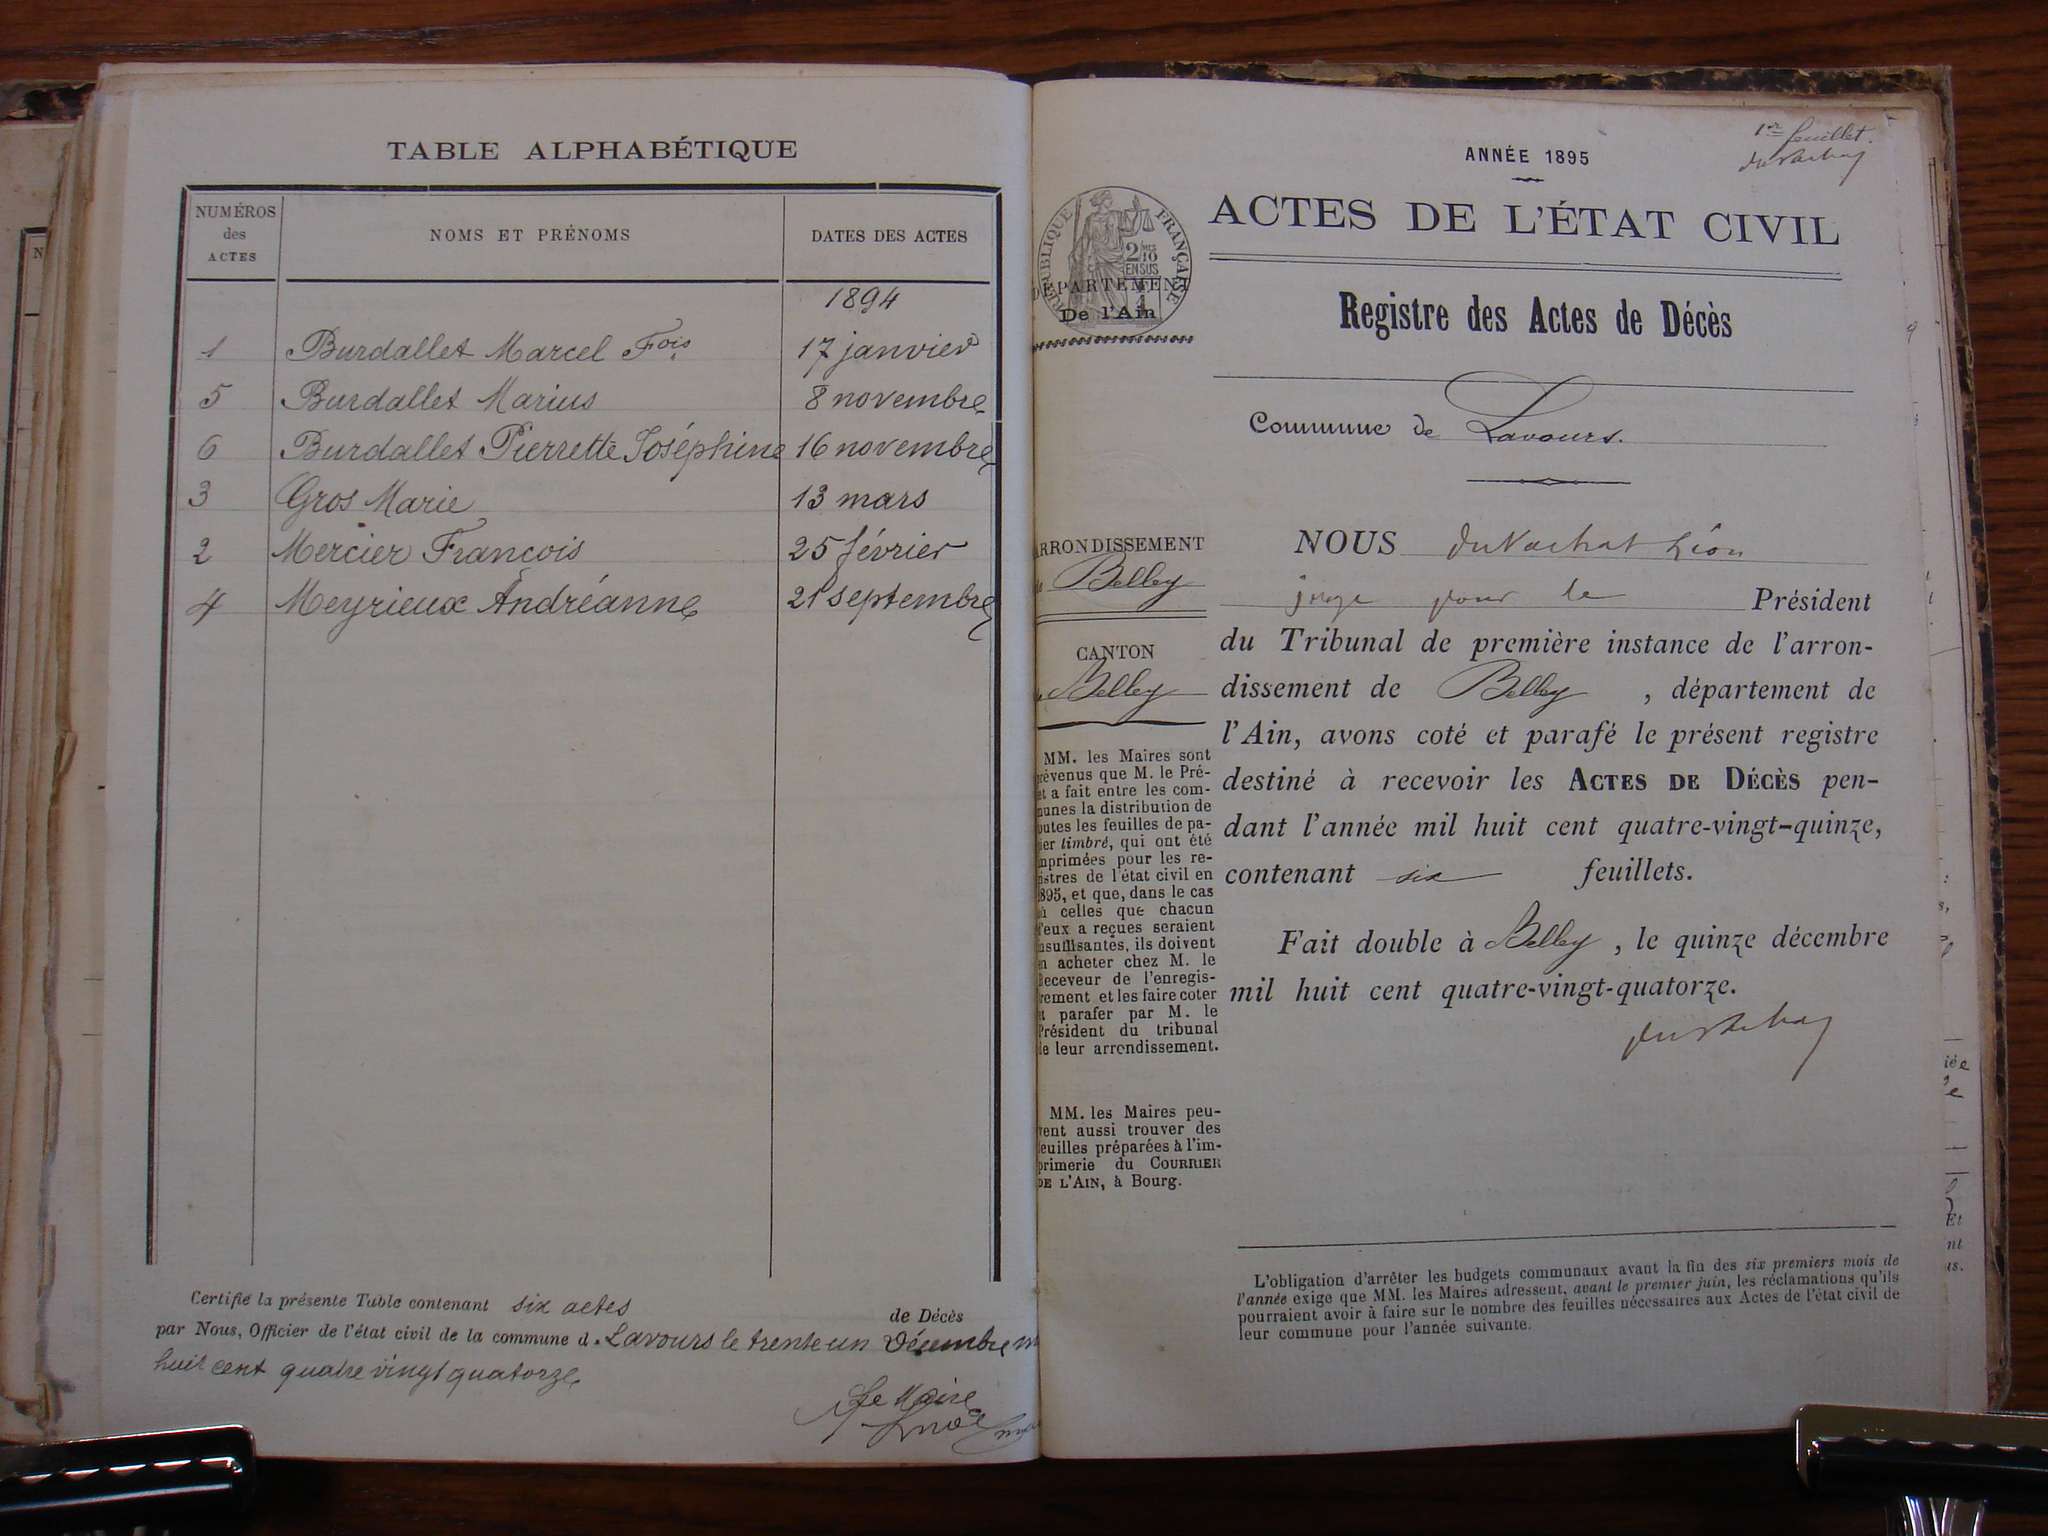 TABLE ALPHABÉTIQUE
NUMÉROS des ACTES
NOMS ET PRÉNOMS
DATES DES ACTES
1894
1 Burdallet Marcel Fois 17 janvier
5 Burdallet Marius 8 novembre
6 Burdallet Pierrette Joséphine 16 novembre
3 Gros Marie 13 mars
2 Mercier François 25 février
4 Meyrieux Andréanne 21 septembre
Certifié la présente Table contenant six actes de Décès
par Nous, Officier de l'état civil de la commune d. Lavours le trente un Décembre m
huit cent quatre vingt quatorze
Le Maire
1er feuillet.
ANNÉE 1895
ACTES DE L'ÉTAT CIVIL
RÉPUBLIQUE FRANÇAISE
2 10
EN SUS
DÉPARTEMENT
De l'Ain
Registre des Actes de Décès
Commune de Lavours.
ARRONDISSEMENT
de Belley
CANTON
Belley
MM. les Maires sont
prévenus que M. le Pré-
et a fait entre les com-
munes la distribution de
toutes les feuilles de pa-
pier timbré, qui ont été
imprimées pour les re-
gistres de l'état civil en
1895, et que, dans le cas
où celles que chacun
d'eux a reçues seraient
insuffisantes, ils doivent
en acheter chez M. le
Receveur de l'enregis-
trement et les faire coter
et parafer par M. le
Président du tribunal
de leur arrondissement.
MM. les Maires peu-
vent aussi trouver des
feuilles préparées à l'im-
primerie du COURRIER
DE L'AIN, à Bourg.
NOUS duVachat Léon
juge pour le Président
du Tribunal de première instance de l'arron-
dissement de Belley, département de
l'Ain, avons coté et parafé le présent registre
destiné à recevoir les ACTES DE DÉCÈS pen-
dant l'année mil huit cent quatre-vingt-quinze,
contenant six feuillets.
Fait double à Belley, le quinze décembre
mil huit cent quatre-vingt-quatorze.
L'obligation d'arrêter les budgets communaux avant la fin des six premiers mois de
l'année exige que MM. les Maires adressent, avant le premier juin, les réclamations qu'ils
pourraient avoir à faire sur le nombre des feuilles nécessaires aux Actes de l'état civil de
leur commune pour l'année suivante.